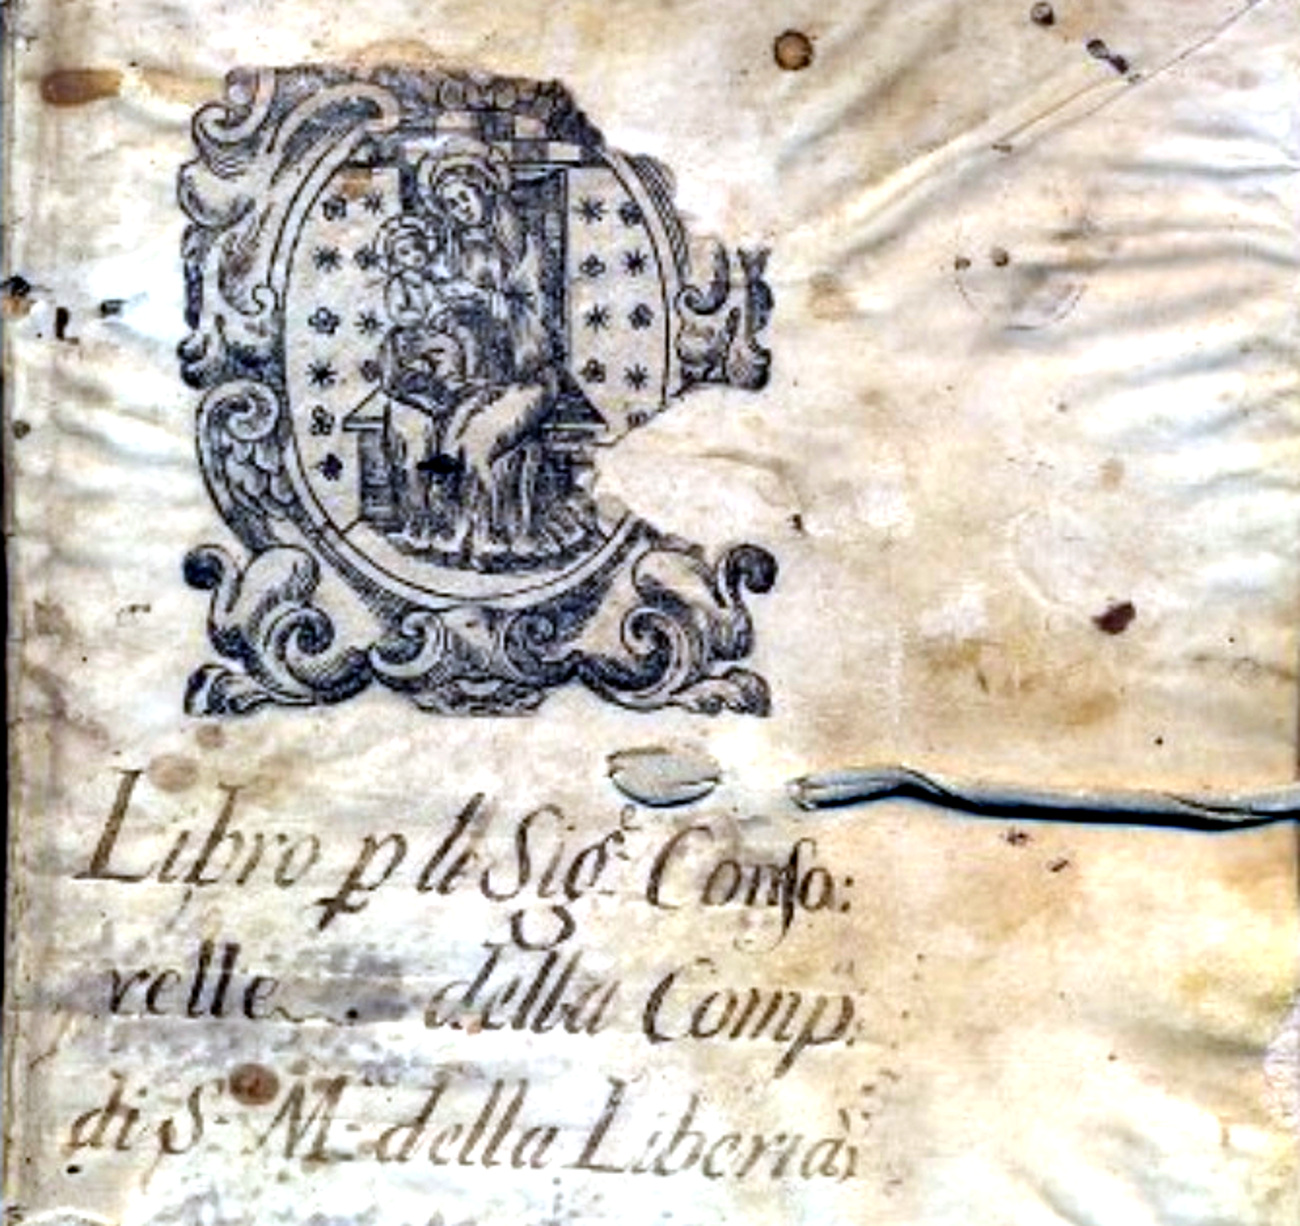 Libro p le Sig.e Conso:
relle della Comp.
di S. M.a della Libertà